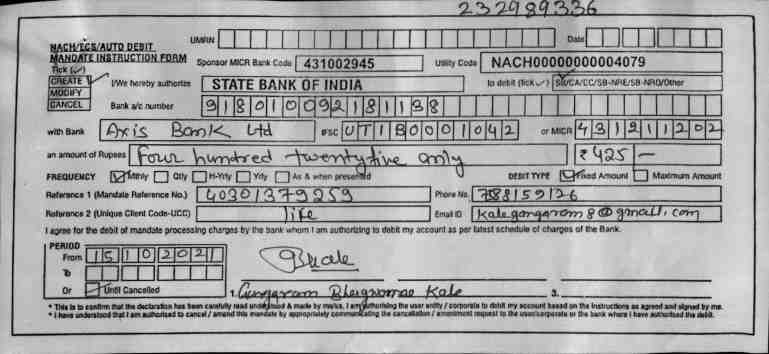 232989336
UMRN Date
NACH/ECS/AUTO DEBIT
MANDATE INSTRUCTION FORM Sponsor MICR Bank Code 431002945 Utility Code NACH00000000004079
Tick (✓)
CREATE ✓ I/We hereby authorize STATE BANK OF INDIA to debit (tick ✓) SB/CA/CC/SB-NRE/SB-NRO/Other
MODIFY
CANCEL Bank a/c number 918010092181138
with Bank Axis Bank Ltd IFSC UTIB0001042 or MICR 431211202
an amount of Rupees four hundred twentyfive only ₹ 425/-
FREQUENCY ✓ Mthly Qtly H-Yrly Yrly As & when presented DEBIT TYPE ✓ Fixed Amount Maximum Amount
Reference 1 (Mandate Reference No.) 40301379259 Phone No. 788159126
Reference 2 (Unique Client Code-UCC) life Email ID kalegangaram8@gmail.com
I agree for the debit of mandate processing charges by the bank whom I am authorizing to debit my account as per latest schedule of charges of the Bank.
PERIOD
From 15102021
To
Or ✓ Until Cancelled 1. Gangaram Kale 3.
* This is to confirm that the declaration has been carefully read understood & made by me/us. I am authorising the user entity / corporate to debit my account based on the instructions as agreed and signed by me.
* I have understood that I am authorised to cancel / amend this mandate by appropriately communicating the cancellation / amendment request to the user/corporate or the bank where I have authorised the debit.